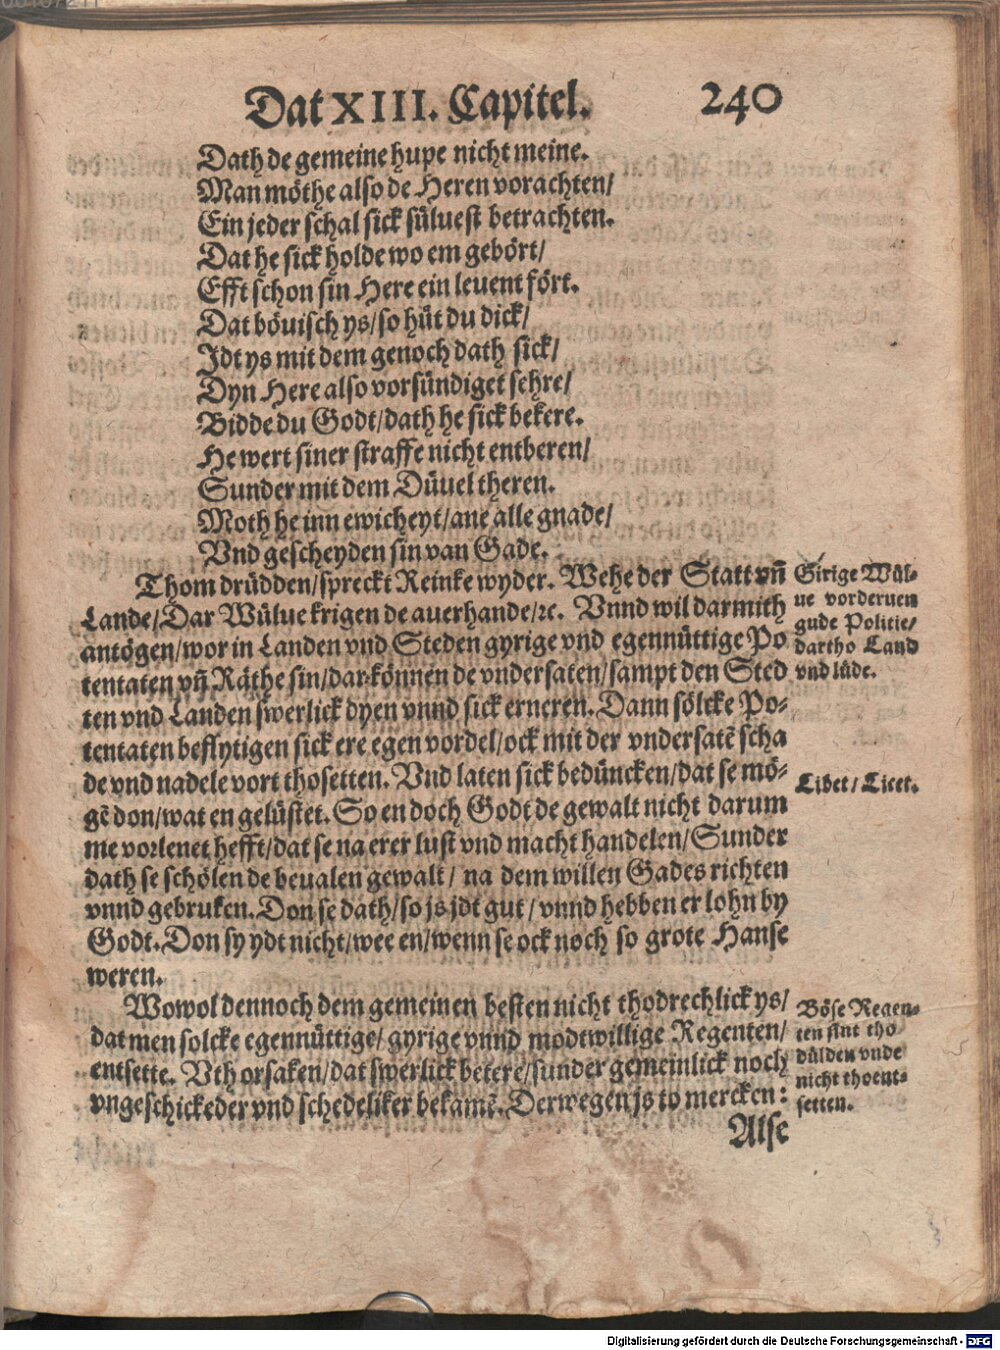 Dat XIII. Capitel. 240
Dath de gemeine hupe nicht meine.
Man möthe also de Heren vorachten/
Ein jeder schal sick sülvest betrachten.
Dat he sick holde wo em gebört/
Efft schon sin Here ein levent fört.
Dat bövisch ys/so hüt du dick/
Idt ys mit dem genoch dath sick/
Dyn Here also vorsündiget sehre/
Bidde du Godt/dath he sick bekere.
He wert siner straffe nicht entberen/
Sunder mit dem Düvel theren.
Moth he inn ewicheyt/ane alle gnade/
Vnd gescheyden sin van Gade.
Thom drüdden/spreckt Reinke wyder. Wehe der Statt vñ
Lande/Dar Wülue krigen de auerhande/ꝛc. Vnnd wil darmith
antögen/wor in Landen vnd Steden gyrige vnd egennüttige Po
tentaten vñ Räthe sin/dar können de vndersaten/sampt den Sted
ten vnd Landen swerlick dyen vnnd sick erneren. Dann sölcke Po-
tentaten beflytigen sick ere egen vordel/ock mit der vndersatē scha
de vnd nadele vort thosetten. Vnd laten sick bedüncken/dat se mö-
gē don/wat en gelüstet. So en doch Godt de gewalt nicht darum
me vorlenet hefft/dat se na erer lust vnd macht handelen/Sunder
dath se schölen de beualen gewalt/ na dem willen Gades richten
vnnd gebruken. Don se dath/so js jdt gut/vnnd hebben er lohn by
Godt. Don sy ydt nicht/wee en/wenn se ock noch so grote Hanse
weren.
Girige Wül-
ue vorderuen
gude Politie/
dartho Land
vnd lüde.
Libet/Licet.
Wowol dennoch dem gemeinen besten nicht thodrechlick ys/
dat men solcke egennüttige/gyrige vnnd modtwillige Regenten/
entsette. Vth orsaken/dat swerlick betere/sunder gemeinlick noch
vngeschickeder vnd schedeliker bekamē. Derwegen js to mercken:
Böse Regen-
ten sint tho
dülden vnde
nicht thoent-
setten.
Alse
Digitalisierung gefördert durch die Deutsche Forschungsgemeinschaft - DFG